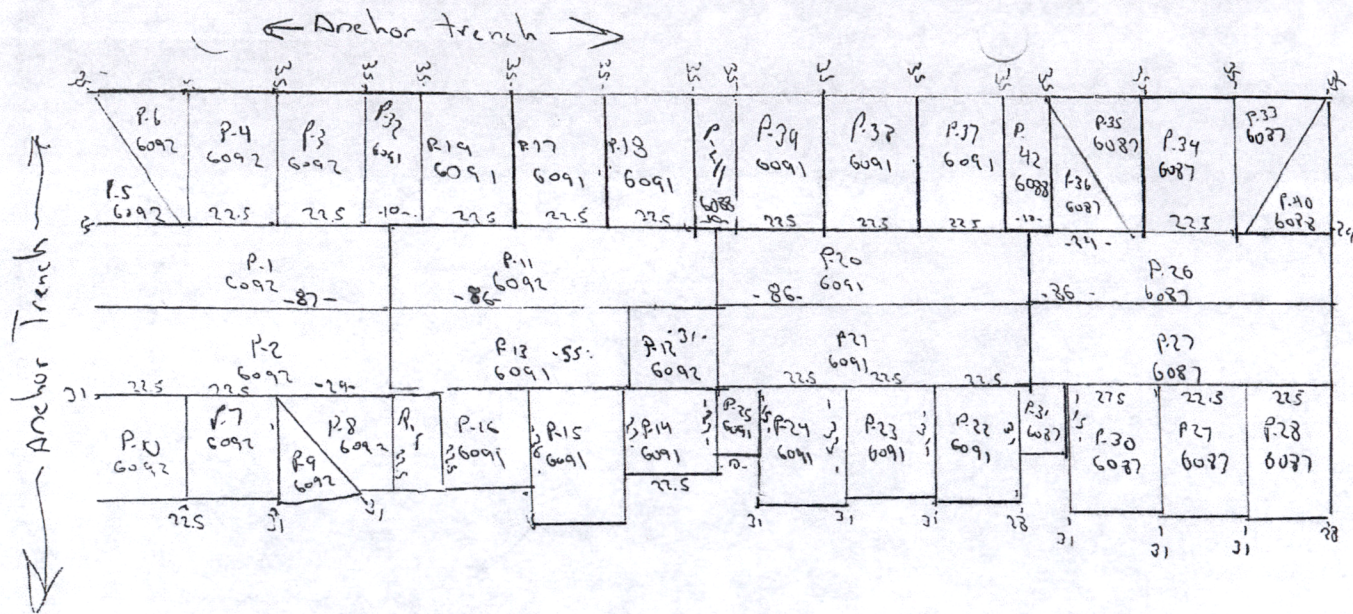 ← Anchor trench →
35 35 35 35 35 35 35 35 35 35 35
P.6
6092
P.4
6092
P.3
6092
P.32
6091
P.19
6091
P.17
6091
P.18
6091
P
6088
P.39
6091
P.38
6091
P.37
6091
P.
42
6088
P.35
6087
P.34
6087
P.33
6087
P.5
6092
P.36
6087
P.40
6088
22.5 22.5 -10- 22.5 22.5 22.5 -10- 22.5 22.5 22.5 -10- -24- 22.5
P.1
6092
-87-
P.11
6092
-86-
P.20
6091
-86-
P.26
6087
-86-
P.2
6092
P.13
6091
-55-
P.12
6092
-31-
P.21
6091
P.27
6087
31
22.5 22.5 -24- 22.5 22.5 22.5 22.5 22.5 22.5
P.10
6092
P.7
6092
P.8
6092
P.9
6092
P.16
6091
P.15
6091
P.14
6091
P.25
6091
P.24
6091
P.23
6091
P.22
6091
P.31
6087
P.30
6087
P.27
6087
P.28
6087
22.5 31 31 22.5 31 31 31 28 31 31 31 28
Anchor Trench